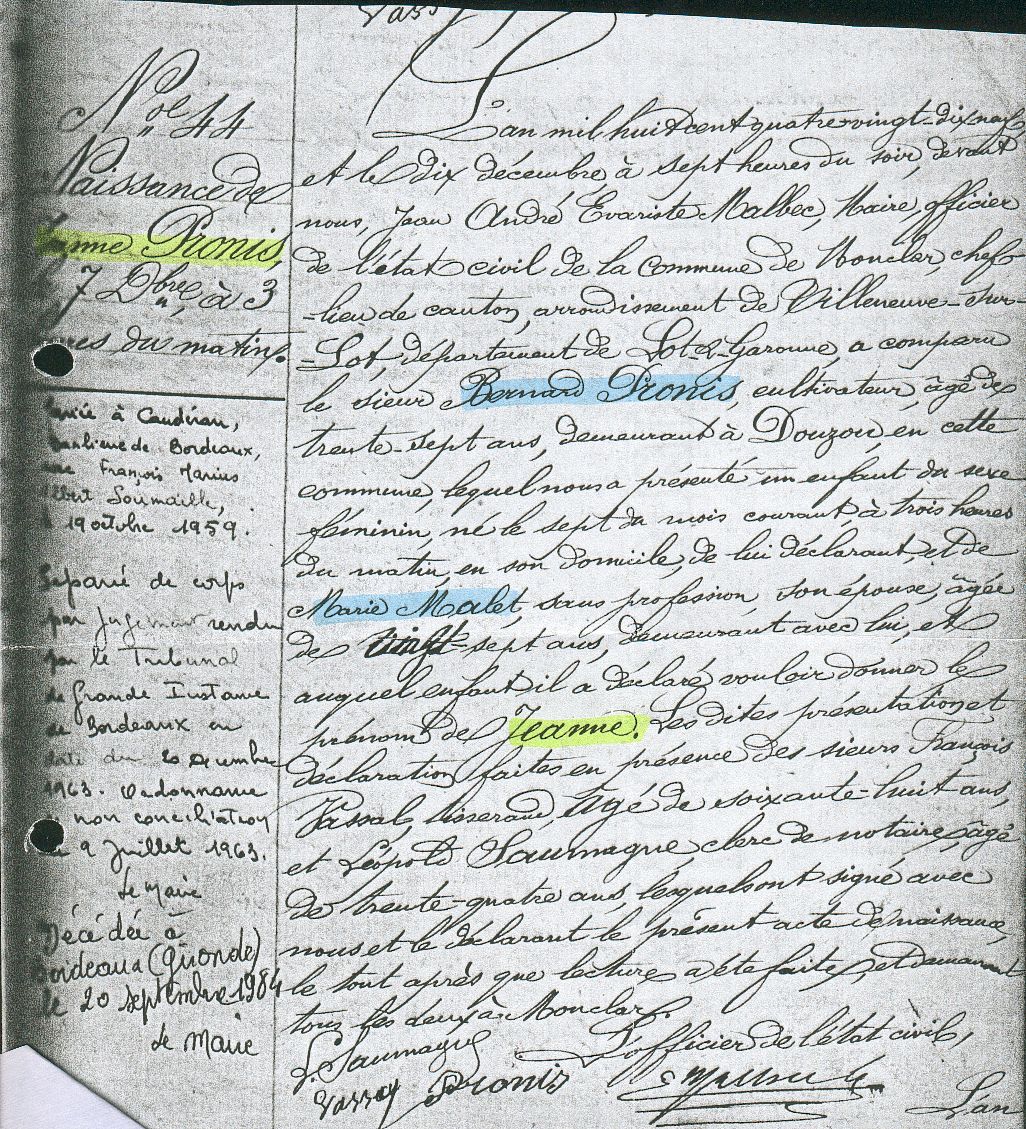 Vassal
N° 44
Naissance de
Jeanne Pionis,
le 7 Dbre, à 3
heures du matin.
Mariée à Caudéran,
banlieue de Bordeaux,
avec François Marius
Albert Soumaille,
le 19 octobre 1959.
Séparée de corps
par jugement rendu
par le Tribunal
de Grande Instance
de Bordeaux en
date du 20 décembre
1963. Ordonnance
non conciliation
9 Juillet 1963.
Le Maire
Décédée à
Bordeaux (Gironde)
le 20 septembre 1984
Le Maire
L'an mil huit cent quatre-vingt-dix neuf
et le dix décembre à sept heures du soir, devant
nous, Jean André Evariste Malbec, Maire, officier
de l'état civil de la commune de Monclar, chef
-lieu de canton, arrondissement de Villeneuve-sur-
-Lot, département de Lot-&-Garonne, a comparu
le sieur Bernard Pionis, cultivateur, âgé de
trente-sept ans, demeurant à Douzou, en cette
commune, lequel nous a présenté un enfant du sexe
féminin, né le sept du mois courant, à trois heures
du matin, en son domicile, de lui déclarant, et de
Marie Malet, sans profession, son épouse, âgée
de vingt-sept ans, demeurant avec lui, et
auquel enfant il a déclaré vouloir donner le
prénom de Jeanne. Les dites présentation et
déclaration faites en présence des sieurs François
Vassal, tisserand, âgé de soixante-huit ans,
et Léopold Saumagne, clerc de notaire, âgé
de trente-quatre ans, lesquels ont signé avec
nous et le déclarant le présent acte de naissance,
le tout après que lecture a été faite, et demeurant
tous les deux à Monclar.
L. Saumagne L'officier de l'état civil,
Vassal Pionis
L'an